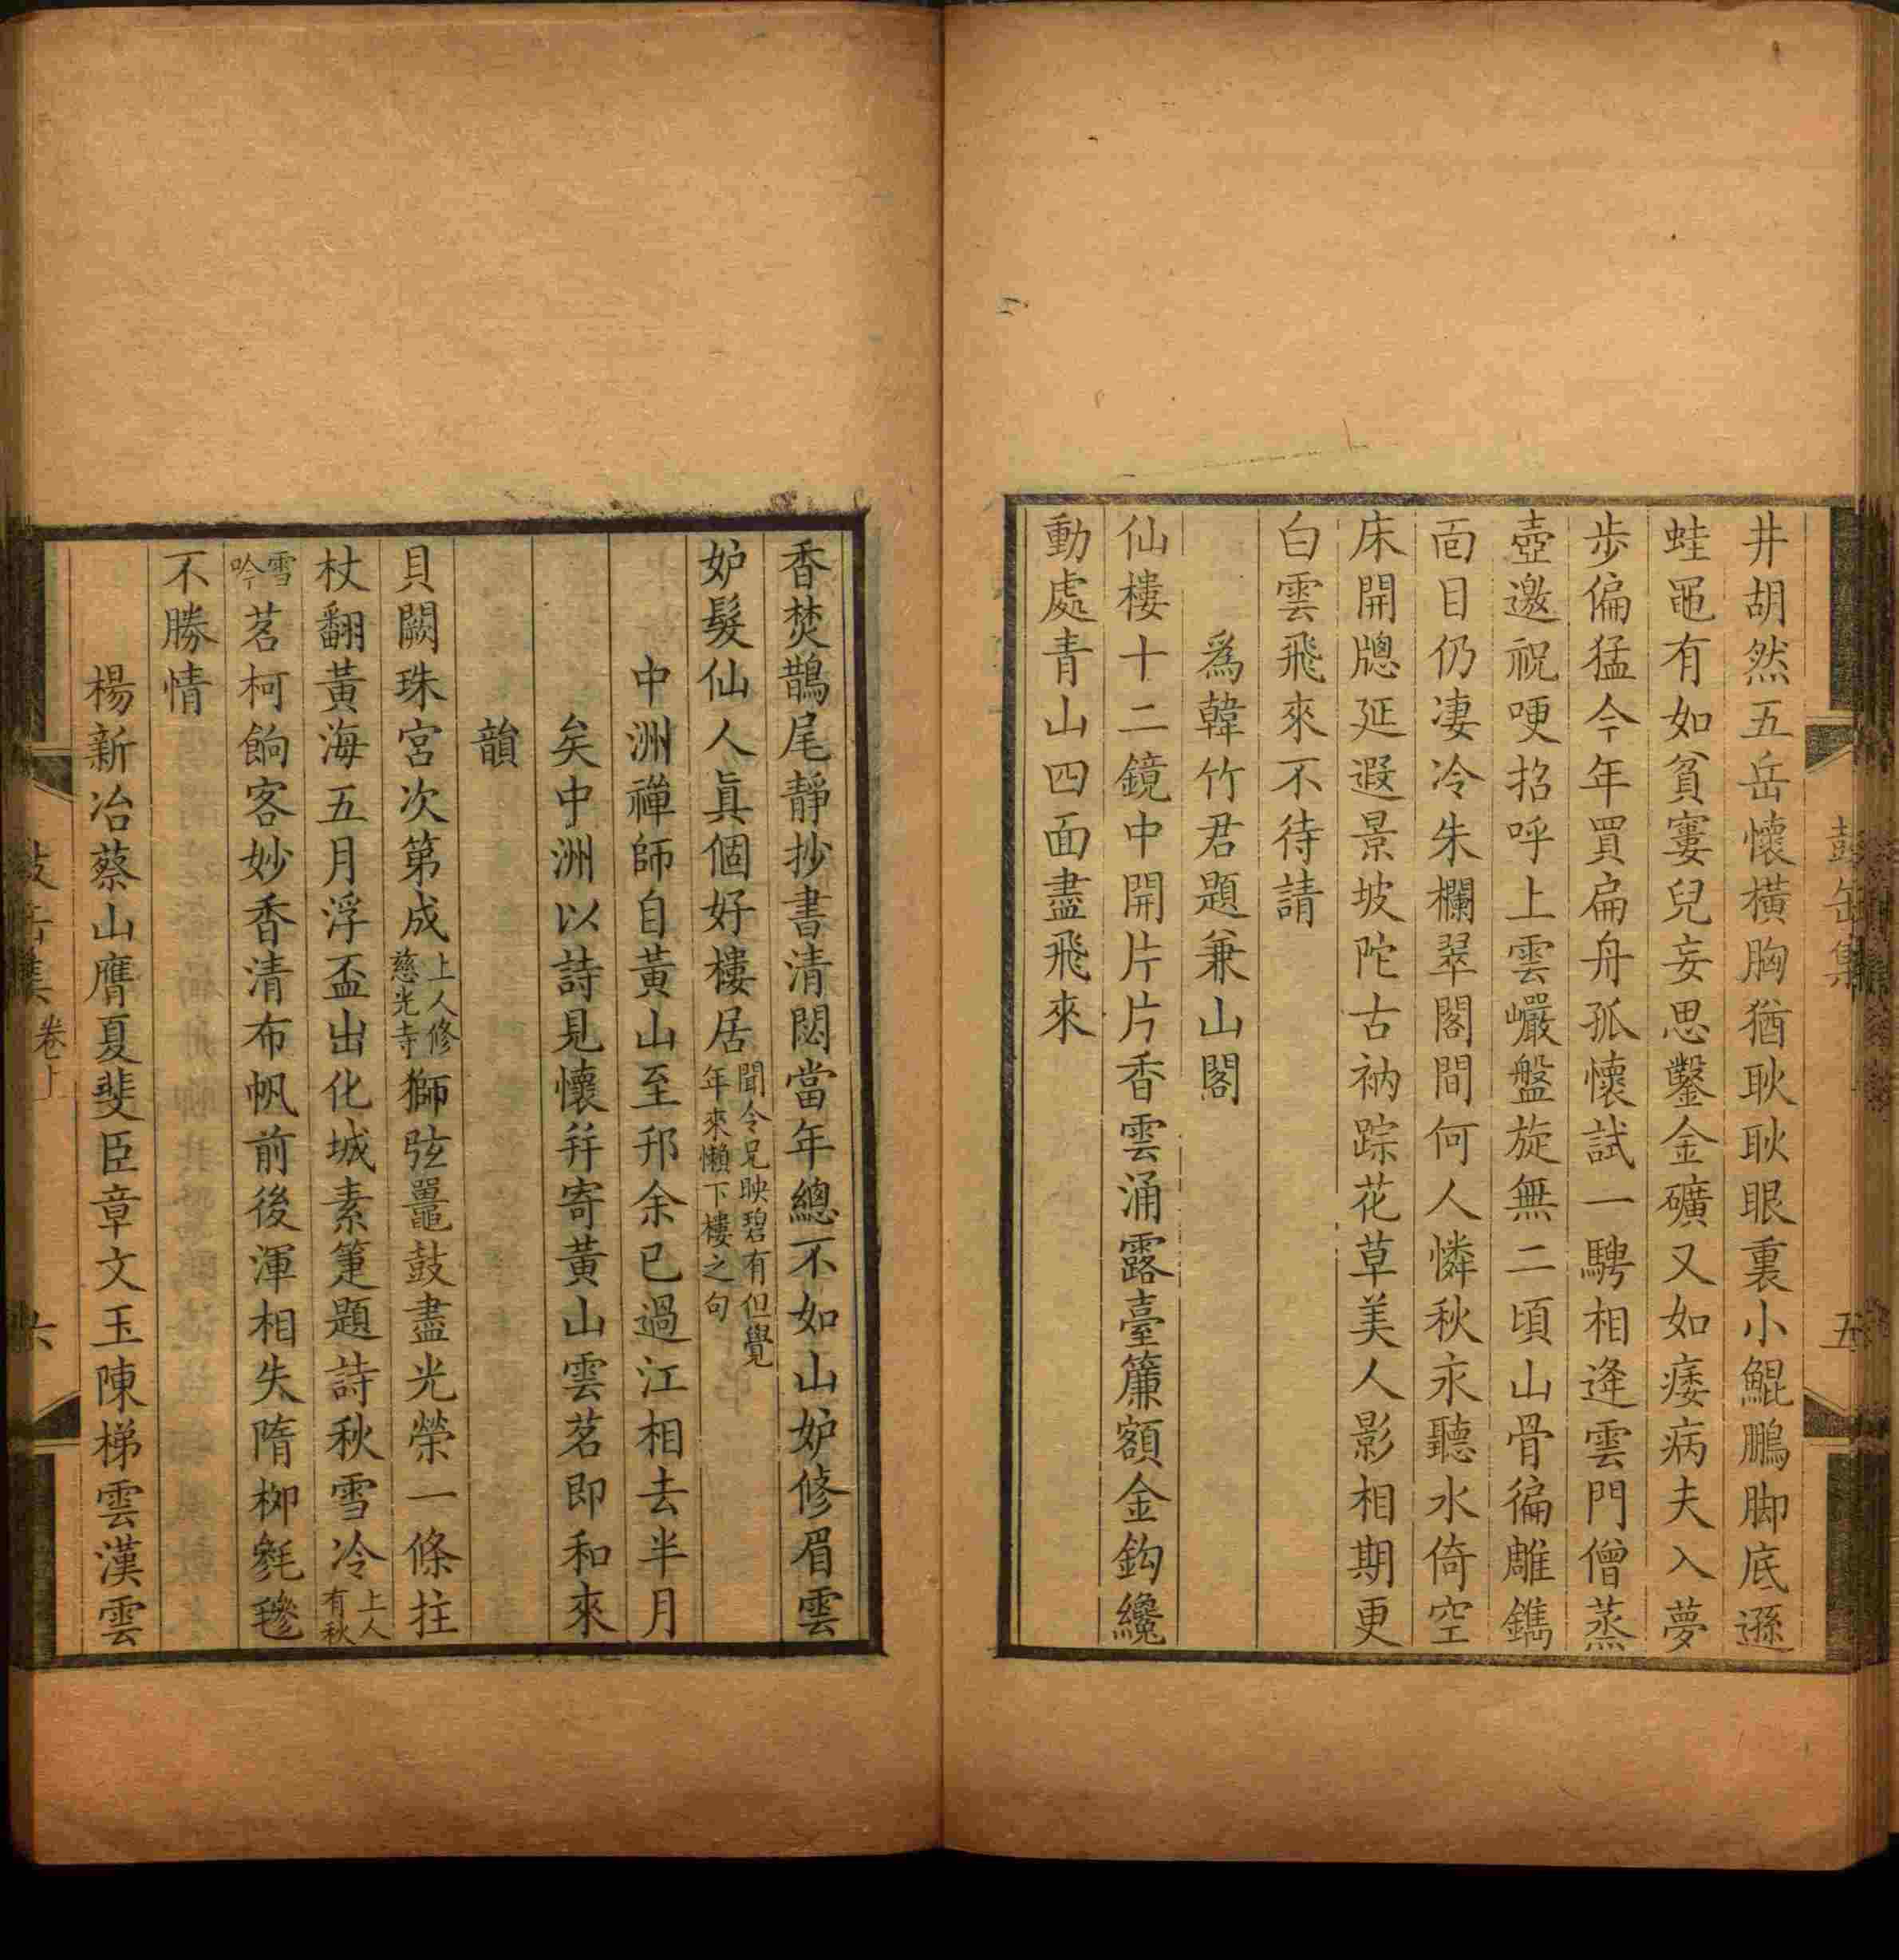 井胡然五岳懷橫胸猶耿耿眼裏小鯤鵬脚底遜
蛙黽有如貧窶兒妄思鑿金礦又如痿病夫入夢
步偏猛今年買扁舟孤懷試一騁相逢雲門僧蒸
壺邀祝哽招呼上雲巘盤旋無二頃山骨徧雕鐫
面目仍凄冷朱欄翠閣間何人憐秋永聽水倚空
床開牕延遐景坡陀古衲踪花草美人影相期更
白雲飛來不待請
爲韓竹君題兼山閣
仙樓十二鏡中開片片香雲涌露臺簾額金鈎纔
動處青山四面盡飛來
五
香焚鵲尾靜抄書清閟當年總不如山妒修眉雲
妒髮仙人眞個好樓居聞令兄映碧有但覺年來懶下樓之句
中洲禪師自黃山至邗余已過江相去半月
矣中洲以詩見懷并寄黃山雲茗即和來
韻
貝闕珠宮次第成上人修慈光寺獅弦鼉鼓盡光榮一條拄
杖翻黃海五月浮盃出化城素箑題詩秋雪冷上人有秋
雪吟茗柯餉客妙香清布帆前後渾相失隋栁毿毿
不勝情
楊新冶蔡山膺夏斐臣章文玉陳梯雲漢雲
卷上
六